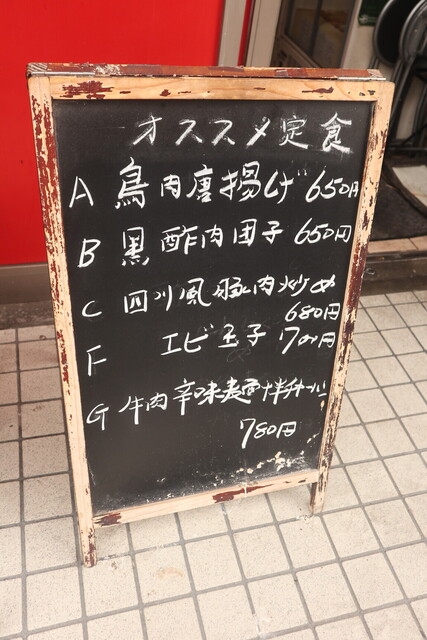 オススメ定食
A 鳥肉唐揚げ 650円
B 黒酢肉団子 650円
C 四川風豚肉炒め
680円
F エビ玉子 700円
G 牛肉辛味麺
780円